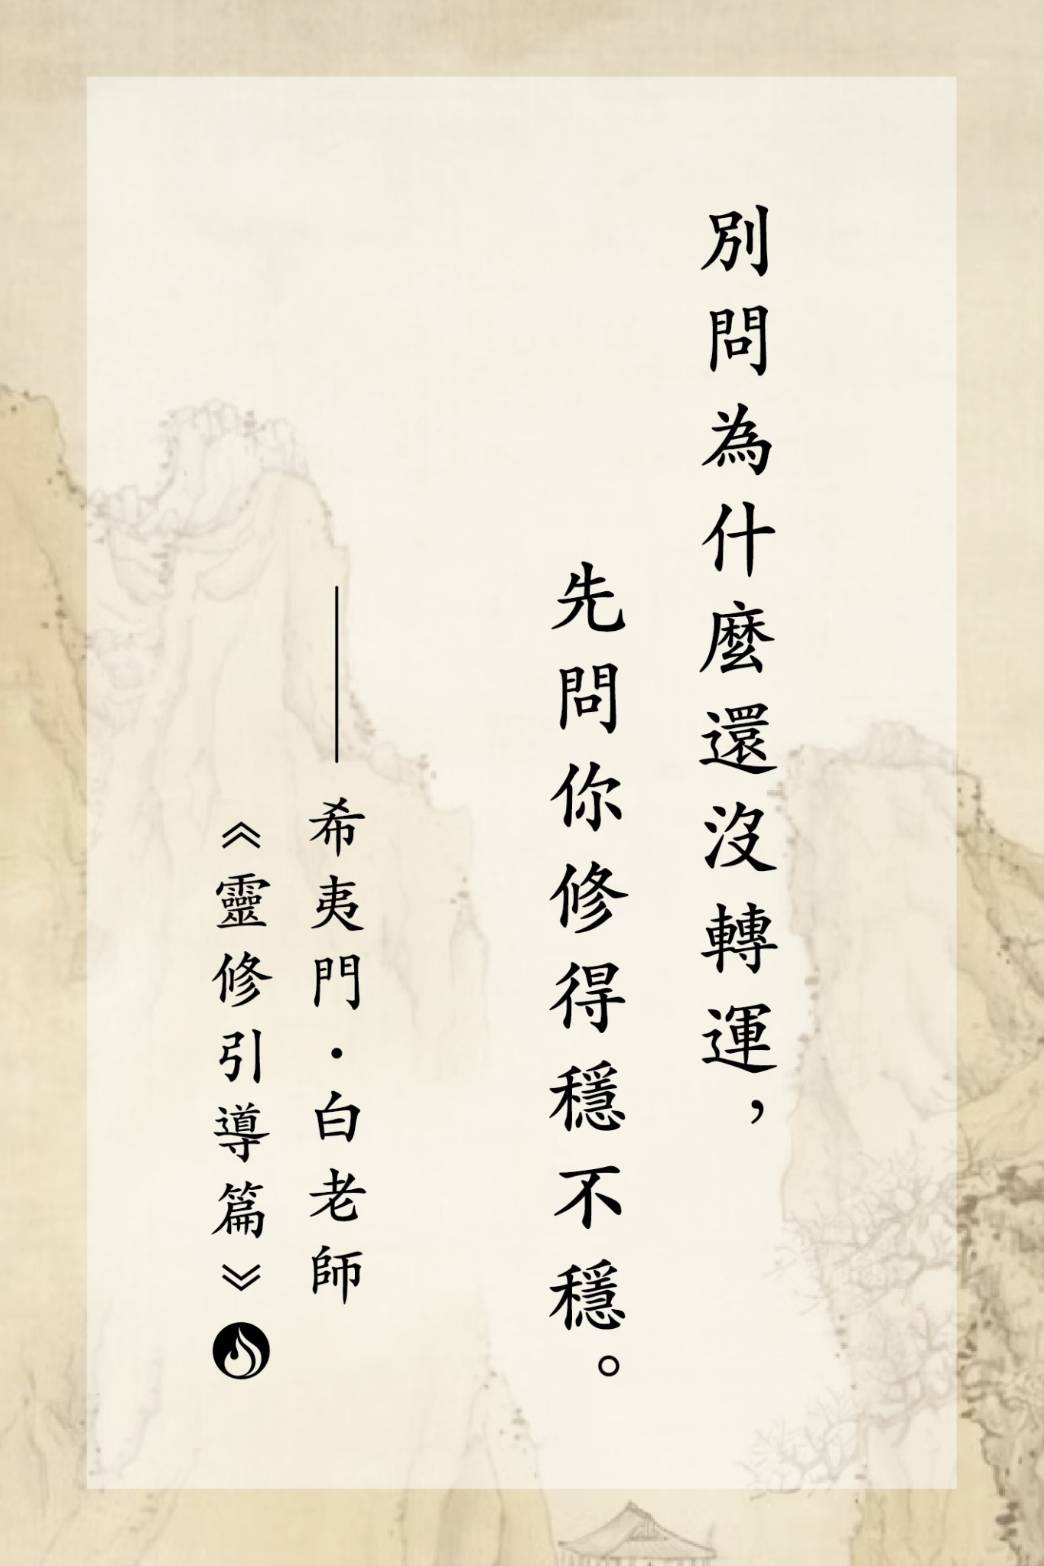 別問為什麼還沒轉運，
先問你修得穩不穩。
——希夷門・白老師
《靈修引導篇》